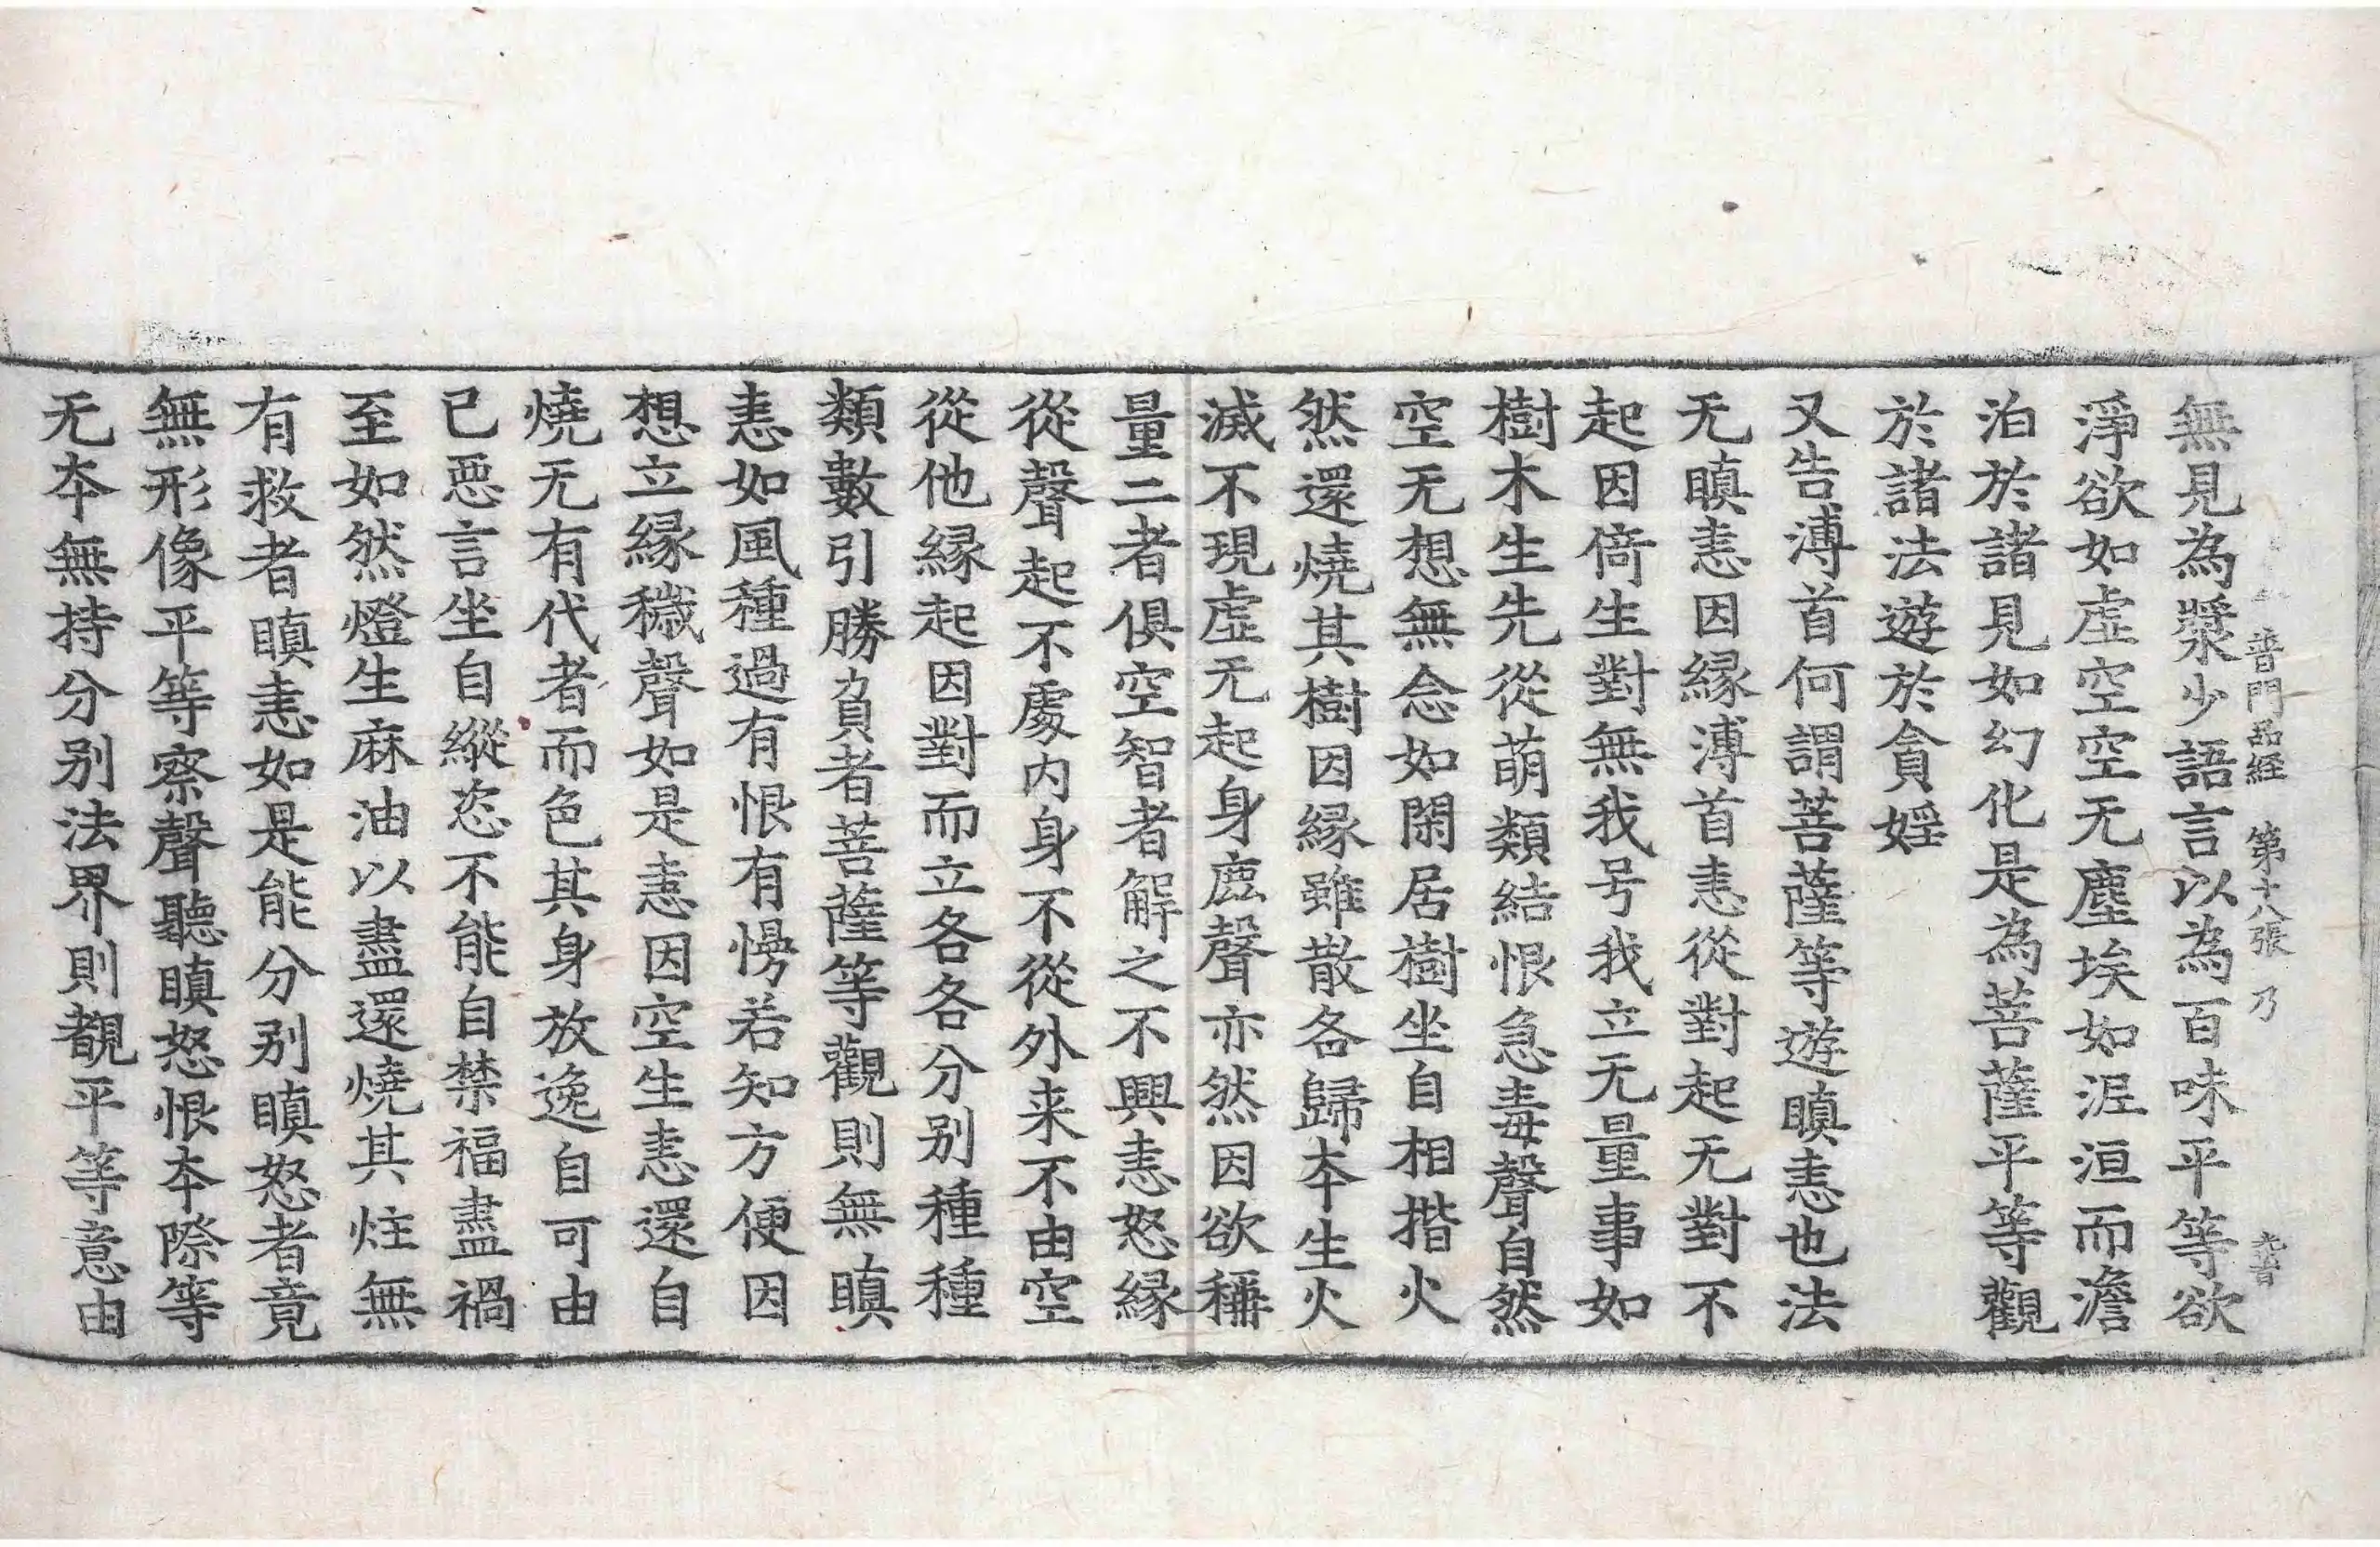 普門品経 第十八張 乃
無見為漿少語言以為百味平等欲
淨欲如虛空空无塵埃如泥洹而澹
泊於諸見如幻化是為菩薩平等觀
於諸法遊於貪婬
又告溥首何謂菩薩等遊瞋恚也法
无瞋恚因緣溥首恚從對起无對不
起因倚生對無我号我立无量事如
樹木生先從萌類結恨急毒聲自然
空无想無念如閑居樹坐自相揩火
然還燒其樹因緣雖散各歸夲生火
滅不現虛无起身麁聲亦然因欲稱
量二者俱空智者解之不興恚怒緣
從聲起不處內身不從外来不由空
從他緣起因對而立各各分別種種
類數引勝負者菩薩等觀則無瞋
恚如風種過有恨有慢若知方便因
想立緣穢聲如是恚因空生恚還自
燒无有代者而色其身放逸自可由
己惡言坐自縱恣不能自禁福盡禍
至如然燈生麻油以盡還燒其炷無
有救者瞋恚如是能分别瞋怒者竟
無形像平等察聲聽瞋怒恨夲際等
无夲無持分别法界則覩平等意由